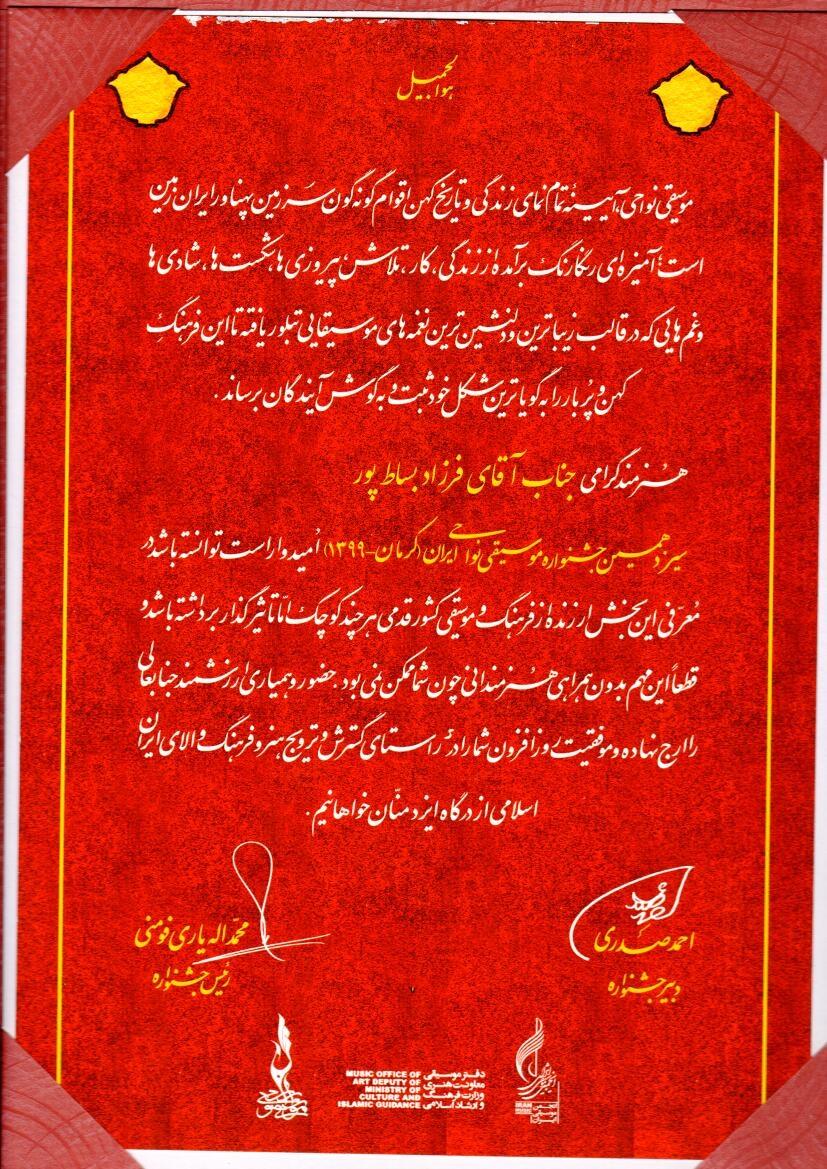 هوالجمیل
موسیقی نواحی، آیینهٔ تمام نمای زندگی و تاریخ کهن اقوام گونه گون سرزمین پهناور ایران زمین
است؛ آمیزه ای رنگارنگ برآمده از زندگی، کار، تلاش، پیروزی ها، شکست ها، شادی ها
و غم هایی که در قالب زیباترین و دلنشین ترین نغمه های موسیقایی تبلور یافته تا این فرهنگِ
کهن و پُربار را به گویاترین شکل خود ثبت و به گوش آیندگان برساند.
هنرمند گرامی جناب آقای فرزاد بساط پور
سیزدهمین جشنواره موسیقی نواحی ایران (کرمان-۱۳۹۹) اُمیدوار است توانسته باشد در
معرّفی این بخش ارزنده از فرهنگ و موسیقی کشور قدمی هرچند کوچک امّا تاثیرگذار برداشته باشد و
قطعاً این مهم بدون همراهی هنرمندانی چون شما ممکن نمی بود. حضور و همیاری ارزشمند جنابعالی
را ارج نهاده و موفقیت روزافزون شما را در راستای گسترش و ترویج هنر و فرهنگ والای ایران
اسلامی از درگاه ایزد منّان خواهانیم.
احمد صدری
دبیر جشنواره
محمّد اله یاری فومنی
رئیس جشنواره
دفتر موسیقی
معاونت هنری
وزارت فرهنگ
و ارشاد اسلامی
MUSIC OFFICE OF
ART DEPUTY OF
MINISTRY OF
CULTURE AND
ISLAMIC GUIDANCE
انجمن
موسیقی
ایران
IRAN
MUSIC